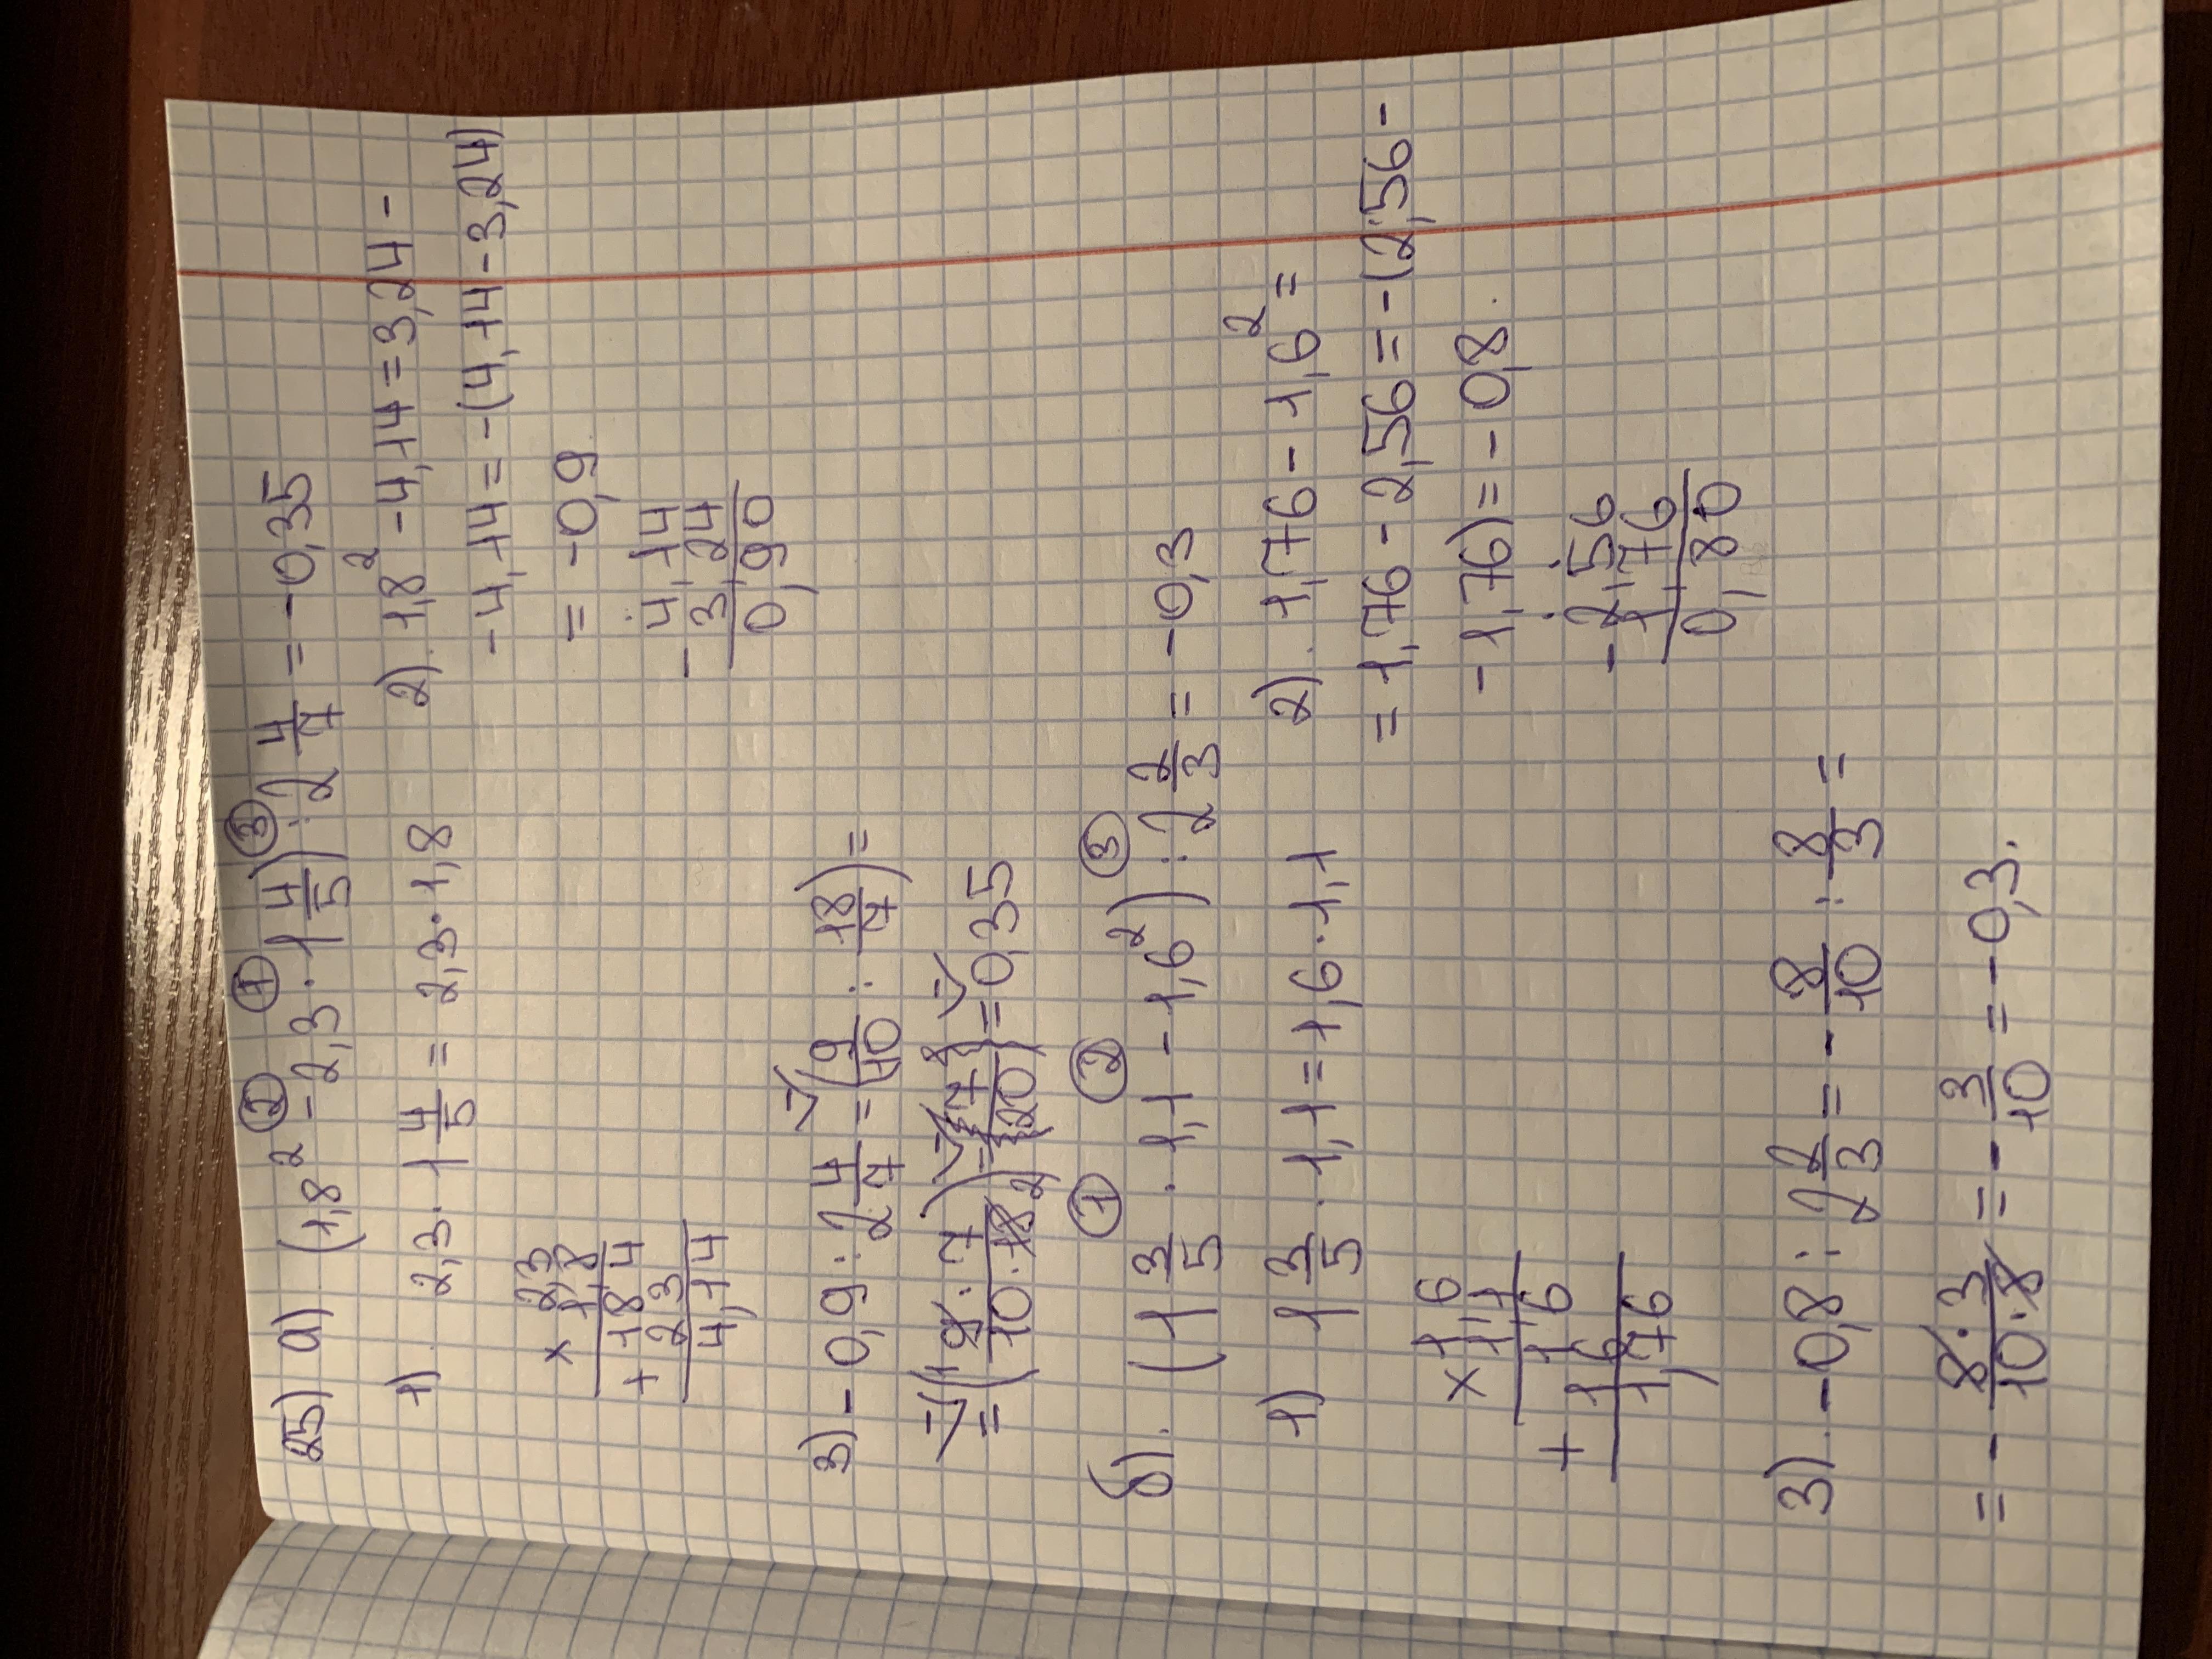 25) а) (1,8² - 2,3 · 1 4/5) : 2 4/7 = -0,35
② ① ③
1). 2,3 · 1 4/5 = 2,3 · 1,8
× 2,3
1,8
+ 184
23
4,14
2). 1,8² - 4,14 = 3,24 -
- 4,14 = -(4,14 - 3,24)
= -0,9
- 4,14
3,24
0,90
3) - 0,9 : 2 4/7 = -(9/10 : 18/7) =
= -(9 · 7 / 10 · 18) = -7/20 = -0,35
б). (1 3/5 · 1,1 - 1,6²) : 2 2/3 = -0,3
① ② ③
1) 1 3/5 · 1,1 = 1,6 · 1,1
× 1,6
1,1
+ 1 6
1 6
1,76
2). 1,76 - 1,6² =
= 1,76 - 2,56 = -(2,56 -
- 1,76) = - 0,8.
- 2,56
1,76
0,80
3). - 0,8 : 2 2/3 = - 8/10 : 8/3 =
= - 8 · 3 / 10 · 8 = - 3/10 = - 0,3.